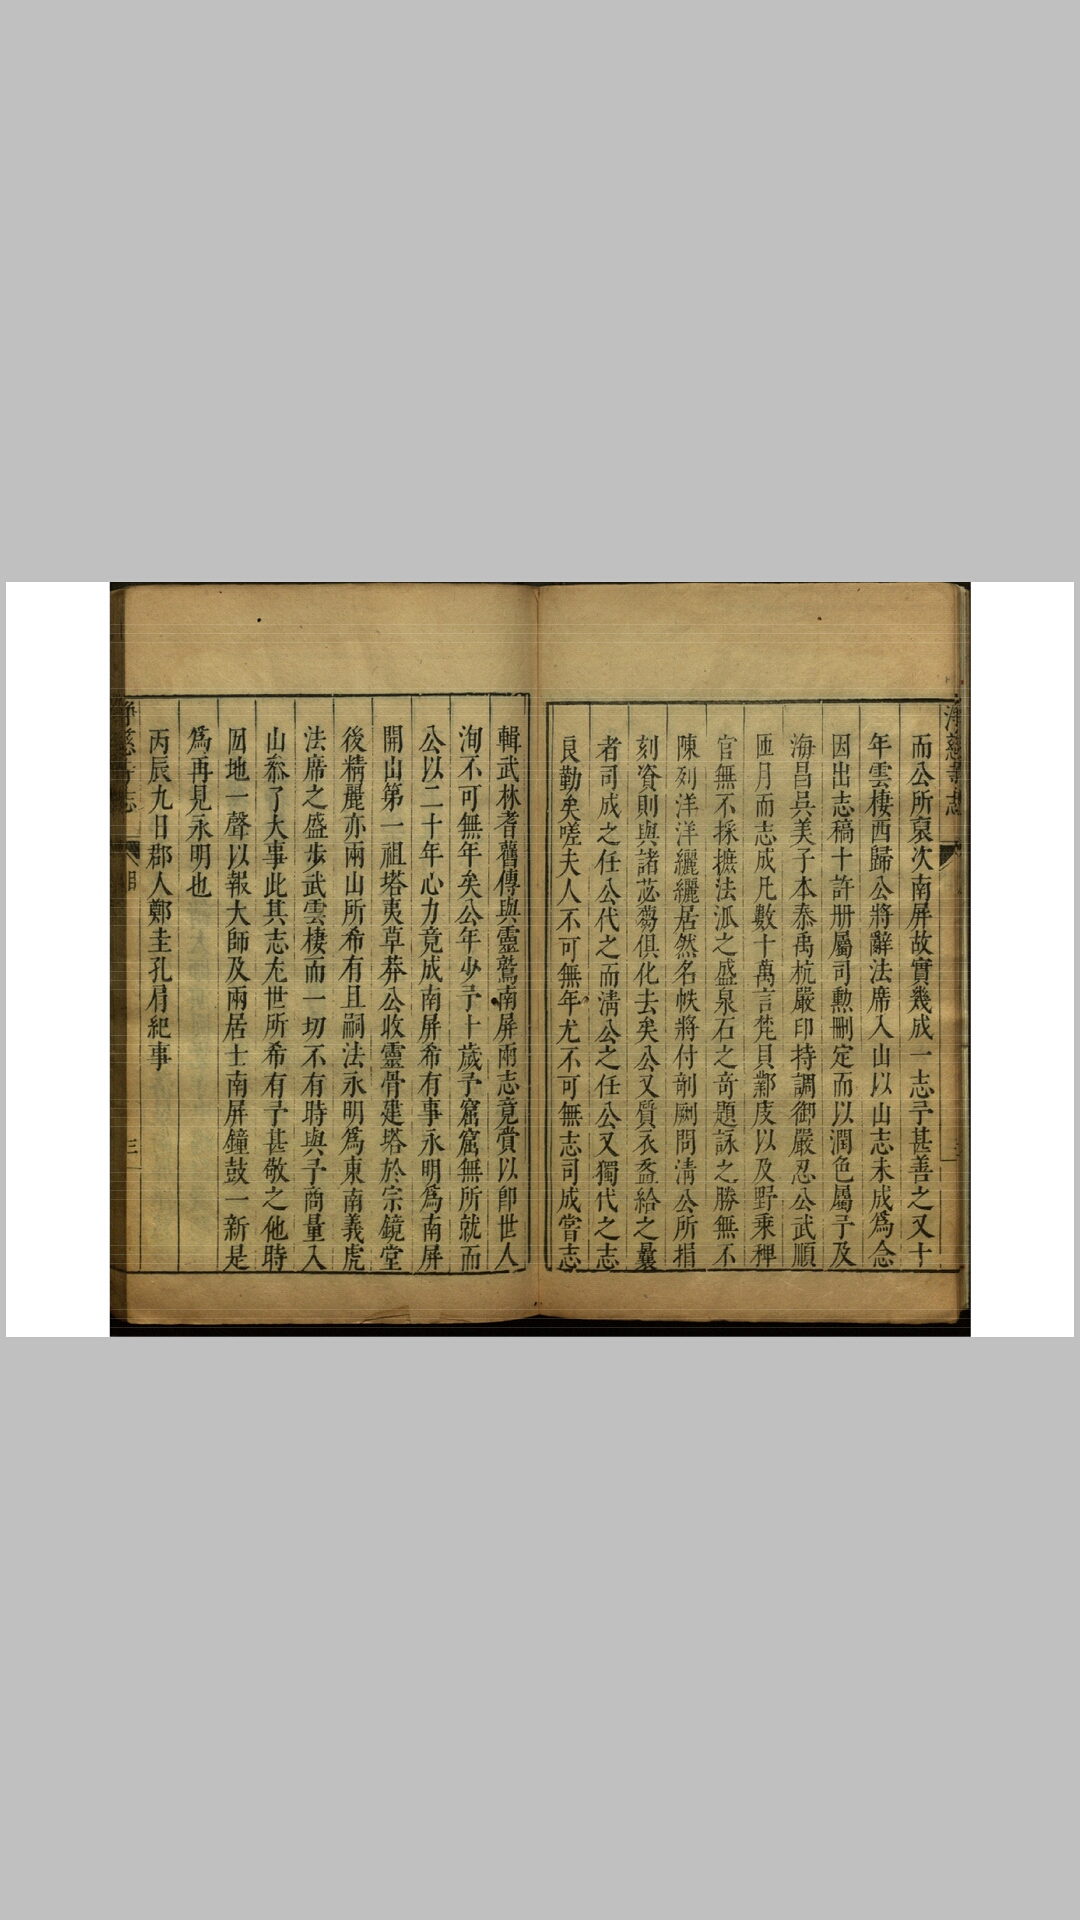 淨慈寺志
而公所裒次南屏故實幾成一志予甚善之又十
年雲棲西歸公將辭法席入山以山志未成爲念
因出志稿十許册屬司勲刪定而以潤色屬予及
海昌吳美子本泰禹杭嚴印持調御嚴忍公武順
匝月而志成凡數十萬言梵貝鄴庋以及野乘稗
官無不採摭法派之盛泉石之竒題詠之勝無不
陳列洋洋纚纚居然名帙將付剞劂問淸公所捐
刻資則與諸苾蒭俱化去矣公又質衣盋給之曩
者司成之任公代之而淸公之任公又獨代之志
良勤矣嗟夫人不可無年尤不可無志司成嘗志
輯武林耆舊傳與靈鷲南屏兩志竟賫以卽世人
洵不可無年矣公年少予十歲予窳窳無所就而
公以二十年心力竟成南屏希有事永明爲南屏
開山第一祖塔夷草莽公收靈骨建塔於宗鏡堂
後精麗亦兩山所希有且嗣法永明爲東南義虎
法席之盛步武雲棲而一切不有時與予商量入
山叅了大事此其志尤世所希有予甚敬之他時
囡地一聲以報大師及兩居士南屏鐘鼓一新是
爲再見永明也
丙辰九日郡人鄭圭孔肩紀事
淨慈寺志
三